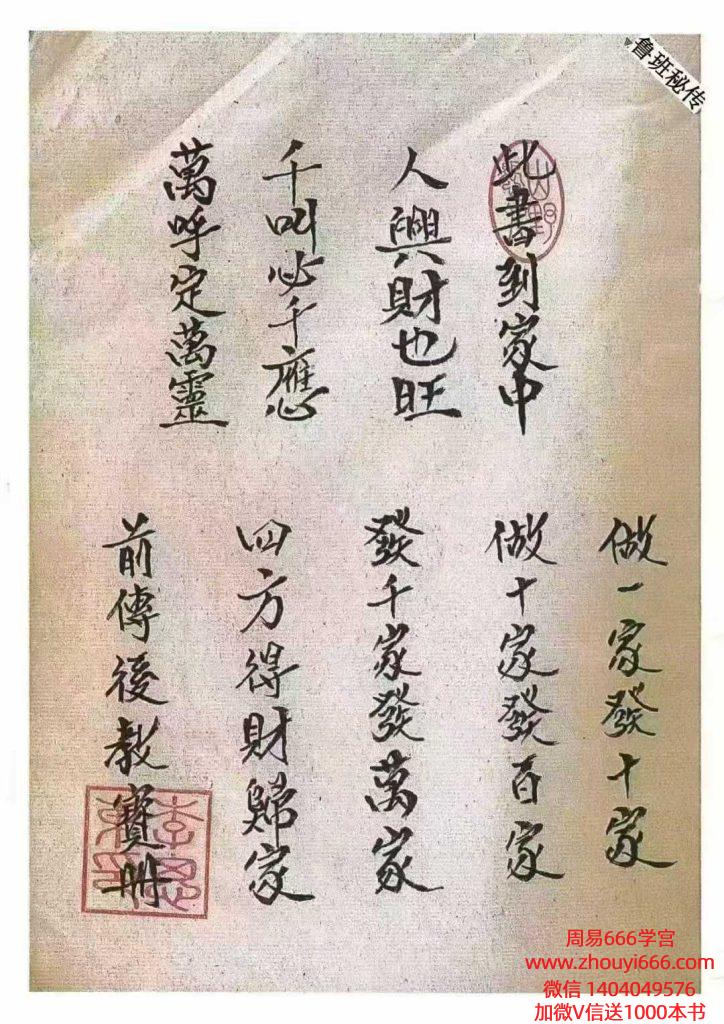 鲁班秘传
此書到家中
人興財也旺
千叫必千應
萬呼定萬靈
做一家發十家
做十家發百家
發千家發萬家
四方得財歸家
前傳後教寶册
周易666学宫
www.zhouyi666.com
微信 1404049576
加微V信送1000本书